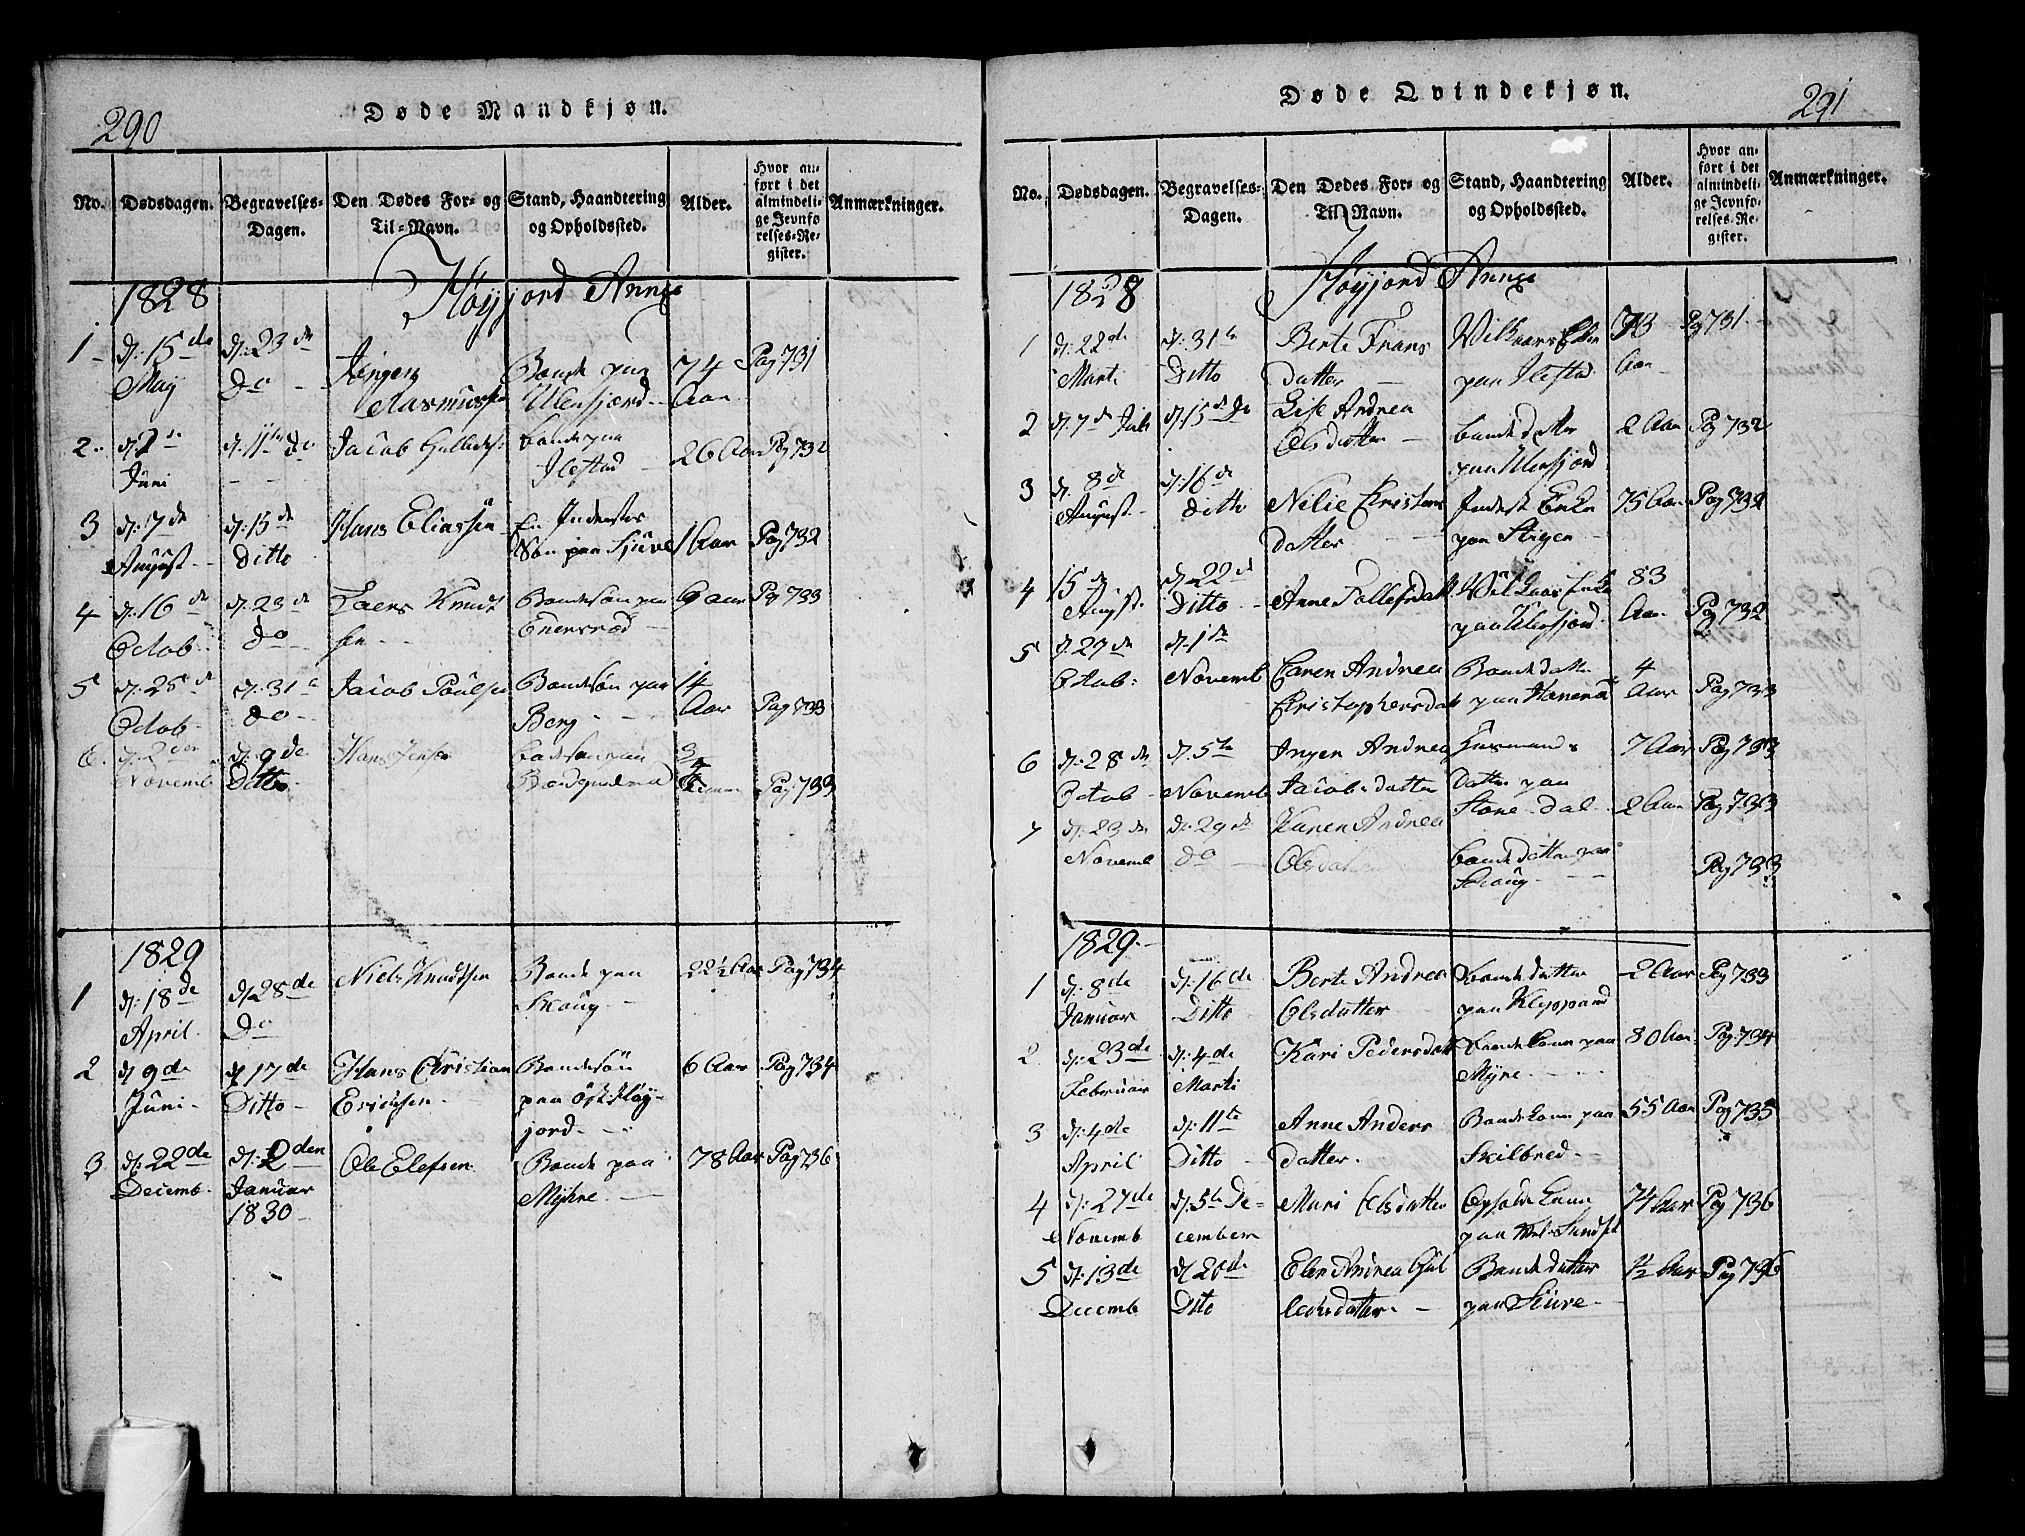 290
Døde Mandkjøn.
No.
Dødsdagen.
Begravelses-
Dagen.
Den Dødes For- og
Til-Navn.
Stand, Haandtering
og Opholdssted.
Alder.
Hvor an-
ført i det
almindeli-
ge Jevnfø
relses-Re-
gister.
Anmærkninger.
1828
Høyjord Annex
1
d: 15de
May
d: 23de
Do
Jørgen
Rasmussen
Bonde paa
74
Aar
Pag 731
2
Juni
d: 11te Do
Jacob
Bonde paa
Ilestad
26 Aar
Pag 732
3
d: 7de
August
d: 15de
Ditto
Hans Eliassen
En Inderstes
Søn paa Sjüve
1 Aar
Pag 732
4
d: 16de
Octob
d: 23de
Do
Laers Knudt
sen
Bondesøn paa
9 Aar
Pag 733
5
d: 25de
Octob
d: 31te
Do
Jacob Poulsen
Bondesøn paa
Berg
14
Aar
Pag 733
6
d: 2den
Novemb
d: 9de
Ditto
Hans Jensen
3/4
Pag 733
1829
1
d: 18de
April
d 28de
Do
Niels Knudtsen
Bonde paa
Skoug
22½ Aar
Pag 734
2
d 9de
Juni
d 17de
Ditto
Hans Christian
Erichsen
Bondesøn
paa øst Høy-
jord
6 Aar
Pag 734
3
d: 22de
Decemb
d: 2den
Januar
1830
Ole Olefsen
Bonde paa
Myhre
78 Aar
Pag 736
Døde Qvindekjøn.
291
No.
Dødsdagen.
Begravelses-
Dagen.
Den Dødes For- og
Til-Navn.
Stand, Haandtering
og Opholdssted.
Alder.
Hvor an-
ført i det
almindeli-
ge Jevnfø-
relses-Re-
gister.
Anmærkninger.
1828
Høyjord Annex
1
d: 22de
Marti
d: 31te
Ditto
Berte Frans
datter
paa Ilestad
73
Aar
Pag 731
2
d. 7de
d 15de Do
Lise Andrea
Olsdatter
bondedatter
2 Aar
Pag 732
3
d. 8de
August
d: 16de
Ditto
Nilie Christens
datter
Inderst Enke
paa Stigen
75 Aar
Pag 732
4
15de
August
d. 22de
Ditto
Anne
83
Aar
Pag 732
5
d. 27de
Octob:
d. 1ste
Novemb
Caren Andrea
Christophersdatt
Bondedatter
4
Aar
Pag 733
6
d: 28de
Octob
d. 5te
Novemb
Ingen Andrea
Jacobsdatter
Husmands
Datter paa
Store-Dal
7 Aar
Pag 733
7
d: 23de
Novemb
d: 29de
Do
Karen Andrea
Olsdatter
bondedatter paa
Skoug
2 Aar
Pag 733
Pag 733
1829
1
d: 8de
Januar
d: 16de
Ditto
Berte Andrea
Olsdatter
bondedatter
2 Aar
Pag 733
2
d: 23de
Februar
d: 4de
Marti
Kari Pedersdatt
bondekone paa
Myre
80 Aar
Pag 734
3
d: 4de
April
d: 11te
Ditto
Anne Anders
datter
Bondekone paa
Skilbred
55 Aar
Pag 735
4
d: 27de
Novemb
d: 5te De-
cember
Mari Olsdatter
74 Aar
Pag 736
5
d: 13de
Decemb
d 20de
Dito
Elen Andrea
Bondedatter
paa Siüve
1½ Aar
Pag 736